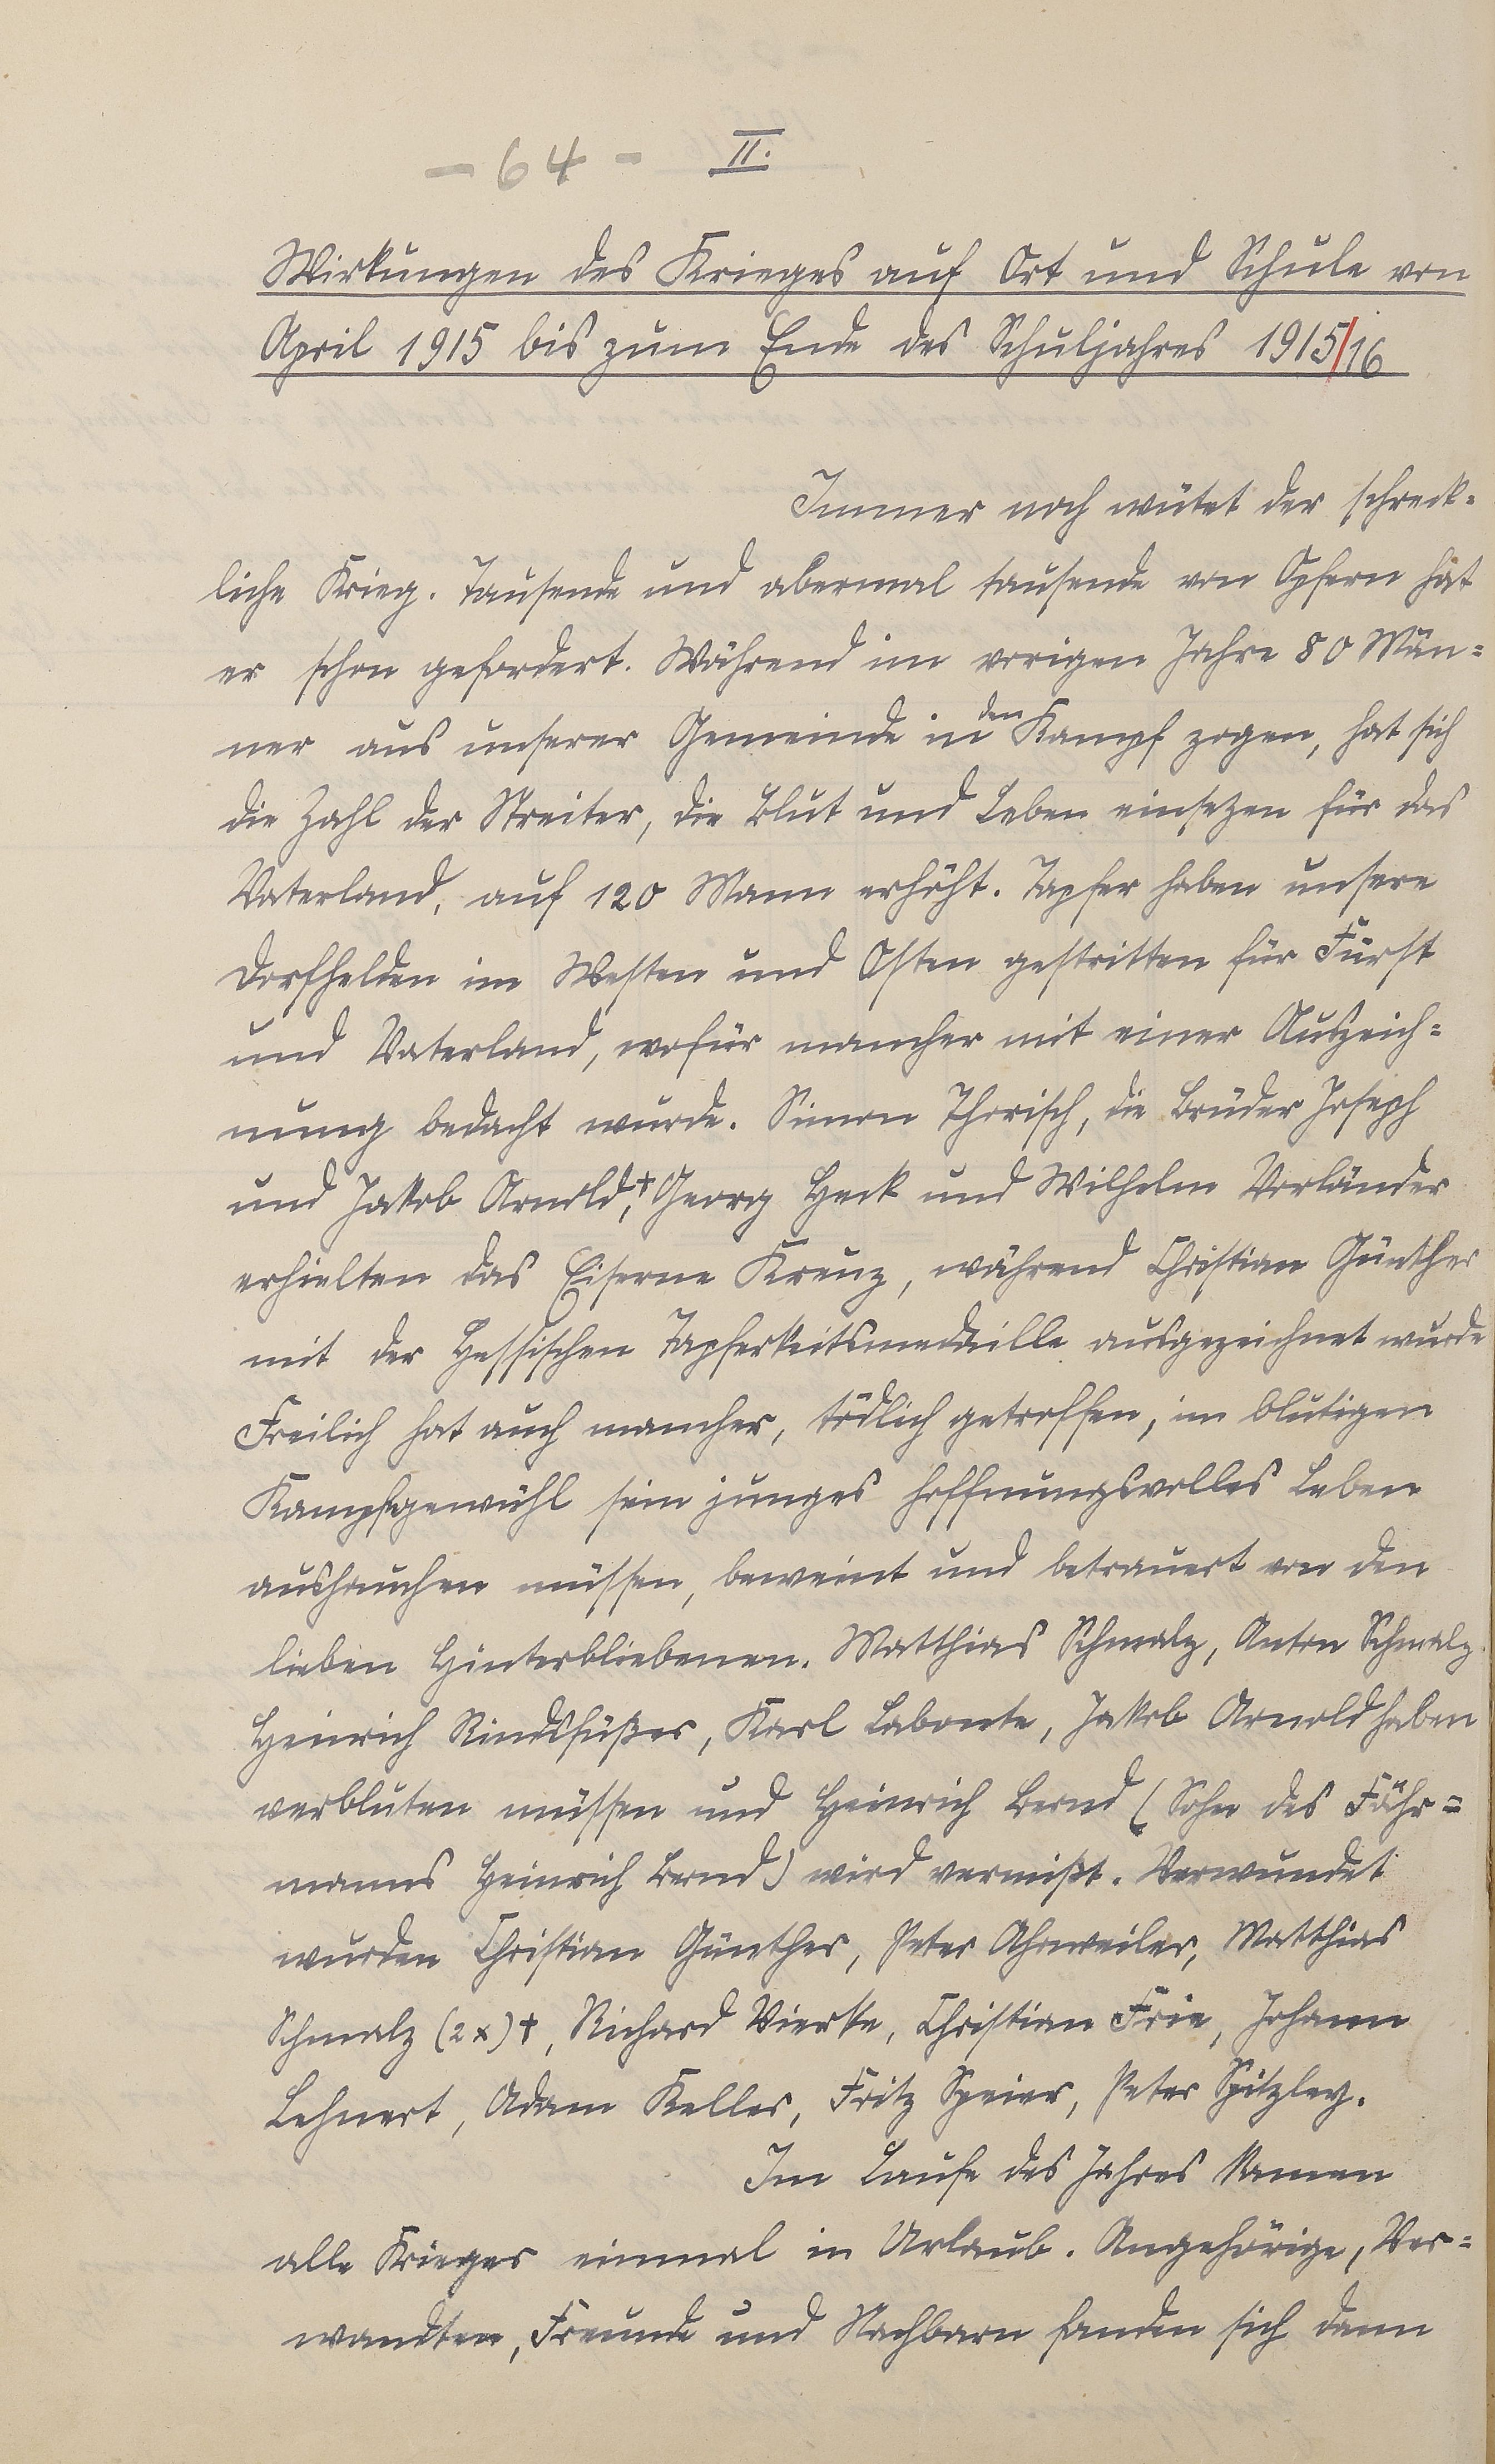 - 64 - II.
Wirkungen des Krieges auf Ort und Schule von
April 1915 bis zum Ende des Schuljahres 1915/16
Immer noch wütet der schreck-
liche Krieg. Tausende und abermal tausende von Opfern hat
er schon gefordert. Während im vorigen Jahre 80 Män-
ner aus unserer Gemeinde in den Kampf zogen, hat sich
die Zahl der Streiter, die Blut und Leben einsetzen für das
Vaterland, auf 120 Mann erhöht. Tapfer haben unsere
Dorfhelden im Westen und Osten gestritten für Fürst
und Vaterland, wofür mancher mit einer Auszeich-
nung bedacht wurde. Simon Thorisch, die Brüder Joseph
und Jakob Arnold,+ Georg Heck und Wilhelm Vorländer
erhielten das Eiserne Kreuz, während Christian Günther
mit der Hessischen Tapferkeitsmedaille ausgezeichnet wurde
Freilich hat auch mancher, tödlich getroffen, im blutigen
Kampfgewühl sein junges hoffnungsvolles Leben
aushauchen müssen, beweint und betrauert von den
lieben Hinterbliebenen. Matthias Schmalz, Anton Schmalz.
Heinrich Rindsfüßer, Karl Labonte, Jakob Arnold haben
verbluten müssen und Heinrich Bernd (Sohn des Fähr=
manns Heinrich Bernd) wird vermißt. Verwundet
wurden Christian Günther, Peter Ahrweiler, Matthias
Schmalz (2x)+, Richard Vierke, Christian Frie, Johann
Lehnert, Adam Keller, Fritz Speier, Peter Spitzley.
Im Laufe des Jahres kamen
alle Krieger einmal in Urlaub. Angehörige, Ver=
wandten, Freunde und Nachbarn fanden sich dann